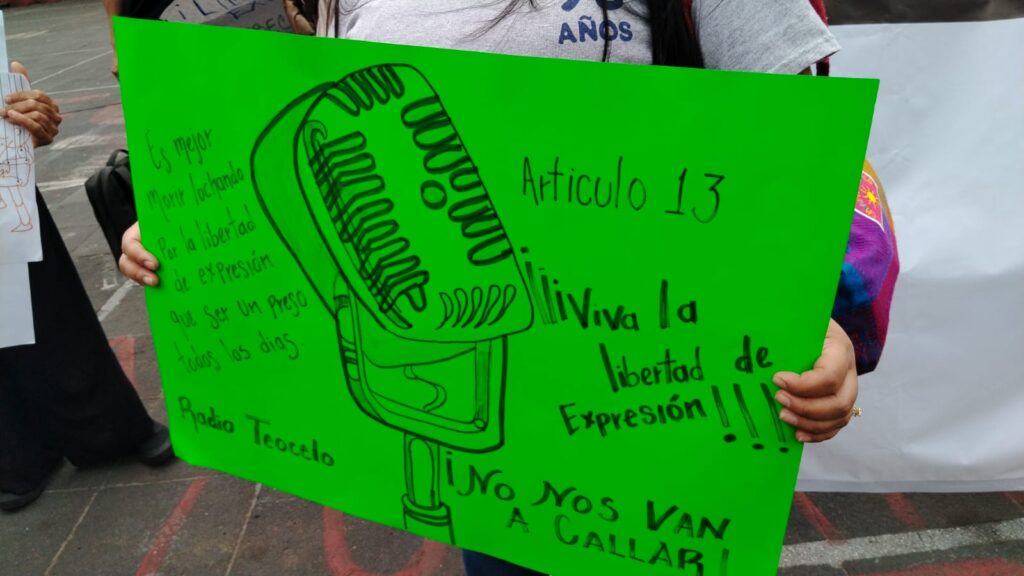 AÑOS
Es mejor
morir lochando
Por la libertad
de expresión
que ser un preso
todos los dias.
Radio Teocelo
Articulo 13
¡¡¡Viva la
libertad de
Expresión!!!
¡No Nos VAN
A CALLAR!